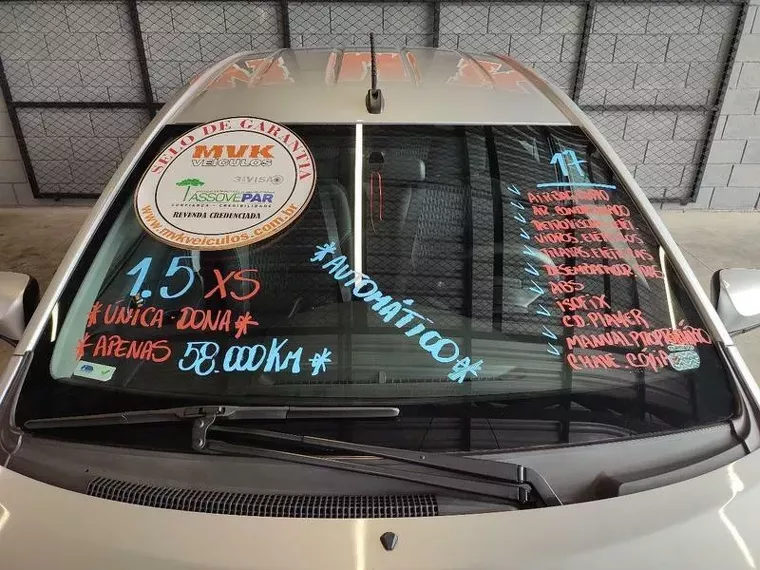 SELO DE GARANTIA
MVK
VEÍCULOS
3ªVISÃO
ASSOVEPAR
CONFIANÇA - CREDIBILIDADE
REVENDA CREDENCIADA
www.mvkveiculos.com.br
1.5 XS
*ÚNICA DONA*
*APENAS 58.000KM*
*AUTOMÁTICO*
17
AIRBAG
AR CONDICIONADO
VIDROS ELÉTRICOS
TRAVAS ELÉTRICAS
DESEMBAÇADOR
ABS
ISOFIX
CD PLAYER
MANUAL PROPRIETÁRIO
CHAVE CÓPIA